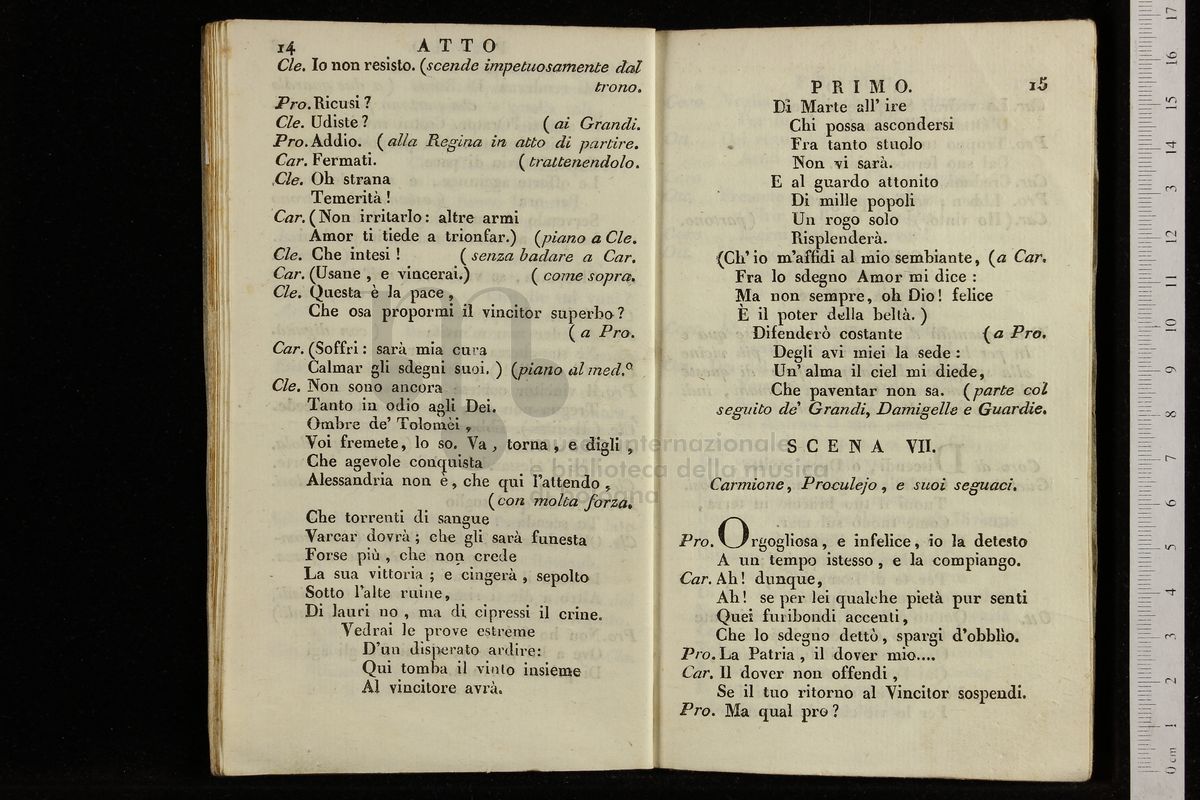 14 ATTO
Cle. Io non resisto. (scende impetuosamente dal
trono.
Pro. Ricusi ?
Cle. Udiste ? ( ai Grandi.
Pro. Addio. ( alla Regina in atto di partire.
Car. Fermati. ( trattenendolo.
Cle. Oh strana
Temerità !
Car. (Non irritarlo : altre armi
Amor ti tiede a trionfar.) (piano a Cle.
Cle. Che intesi ! ( senza badare a Car.
Car. (Usane , e vincerai.) ( come sopra.
Cle. Questa è la pace ,
Che osa propormi il vincitor superbo ?
( a Pro.
Car. (Soffri : sarà mia cura
Calmar gli sdegni suoi. ) (piano al med.º
Cle. Non sono ancora
Tanto in odio agli Dei.
Ombre de' Tolomèi ,
Voi fremete, lo so. Va , torna , e digli ,
Che agevole conquista
Alessandria non è , che qui l'attendo ,
( con molta forza.
Che torrenti di sangue
Varcar dovrà ; che gli sarà funesta
Forse più , che non crede
La sua vittoria ; e cingerà , sepolto
Sotto l'alte ruine,
Di lauri no , ma di cipressi il crine.
Vedrai le prove estreme
D'un disperato ardire:
Qui tomba il vinto insieme
Al vincitore avrà.
PRIMO. 15
Di Marte all' ire
Chi possa ascondersi
Fra tanto stuolo
Non vi sarà.
E al guardo attonito
Di mille popoli
Un rogo solo
Risplenderà.
(Ch' io m'affidi al mio sembiante, (a Car.
Fra lo sdegno Amor mi dice :
Ma non sempre, oh Dio! felice
È il poter della beltà. )
Difenderò costante (a Pro.
Degli avi miei la sede :
Un' alma il ciel mi diede,
Che paventar non sa. (parte col
seguito de' Grandi, Damigelle e Guardie.
SCENA VII.
Carmione, Proculejo , e suoi seguaci.
Pro. Orgogliosa , e infelice, io la detesto
A un tempo istesso , e la compiango.
Car. Ah! dunque,
Ah! se per lei qualche pietà pur senti
Quei furibondi accenti,
Che lo sdegno dettò, spargi d'obblìo.
Pro. La Patria , il dover mio....
Car. Il dover non offendi ,
Se il tuo ritorno al Vincitor sospendi.
Pro. Ma qual pro ?
museo internazionale
e biblioteca della musica
bologna
0 cm 1 2 3 4 5 6 7 8 9 10 11 12 13 14 15 16 17